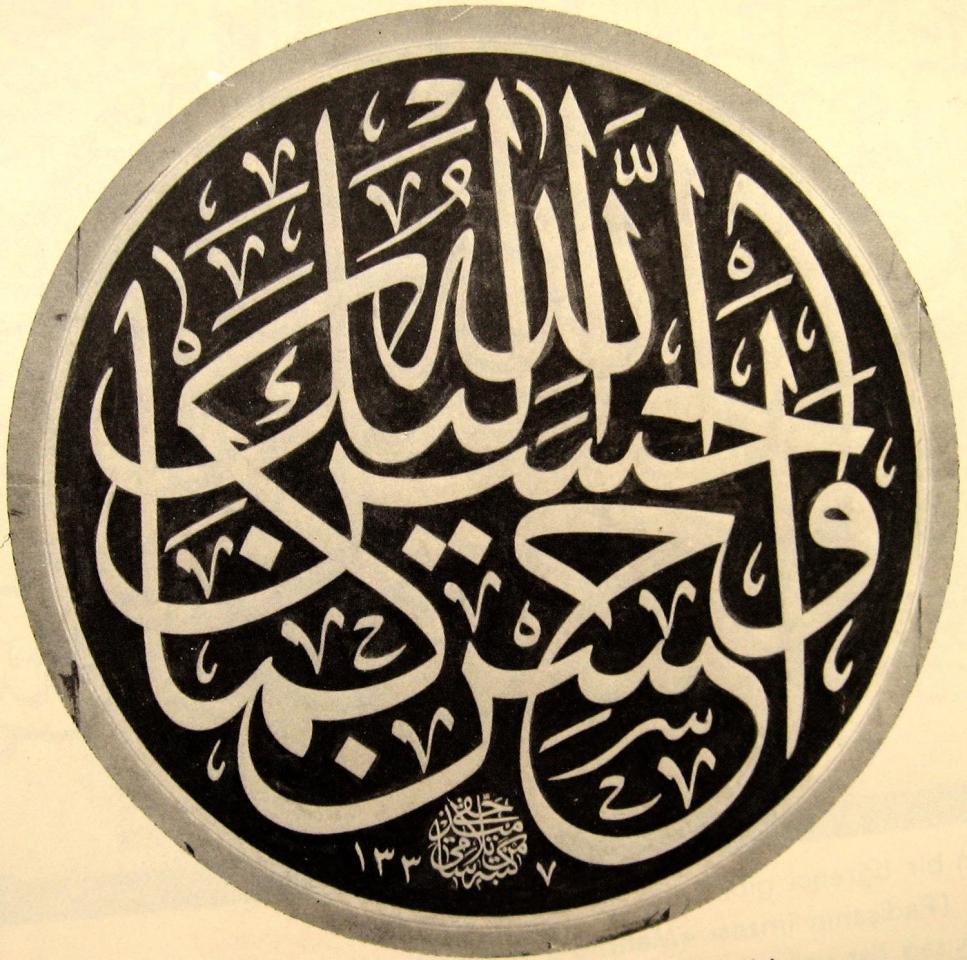 وَأَحْسِنْ كَمَا أَحْسَنَ اللّٰهُ إِلَيْكَ
١٣٣٧